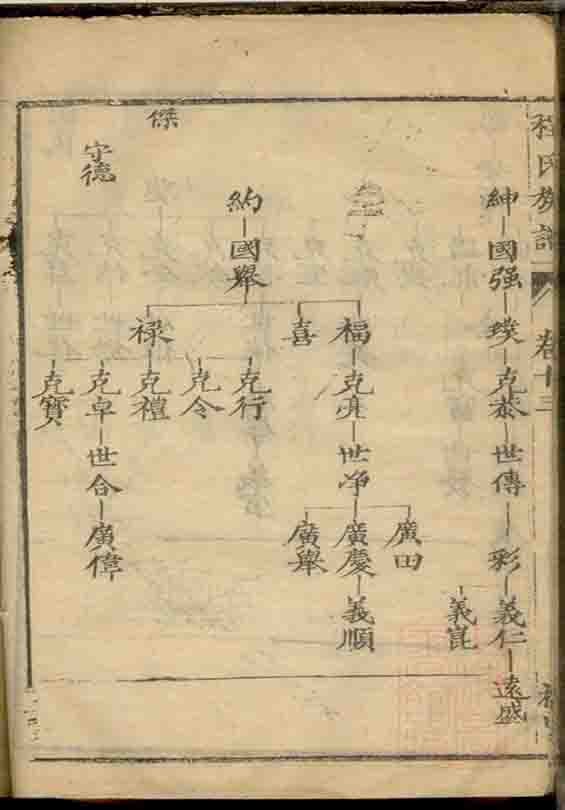 程氏族譜
卷十三
紳 國強 璞 克恭 世傳 彩 義仁 遠盛
義崑
福 克亮 世净 廣慶 義順
廣田
廣舉
喜
約 國舉
祿 克禮
克行
克令
克卓 世合 廣偉
克寶
傑
守德